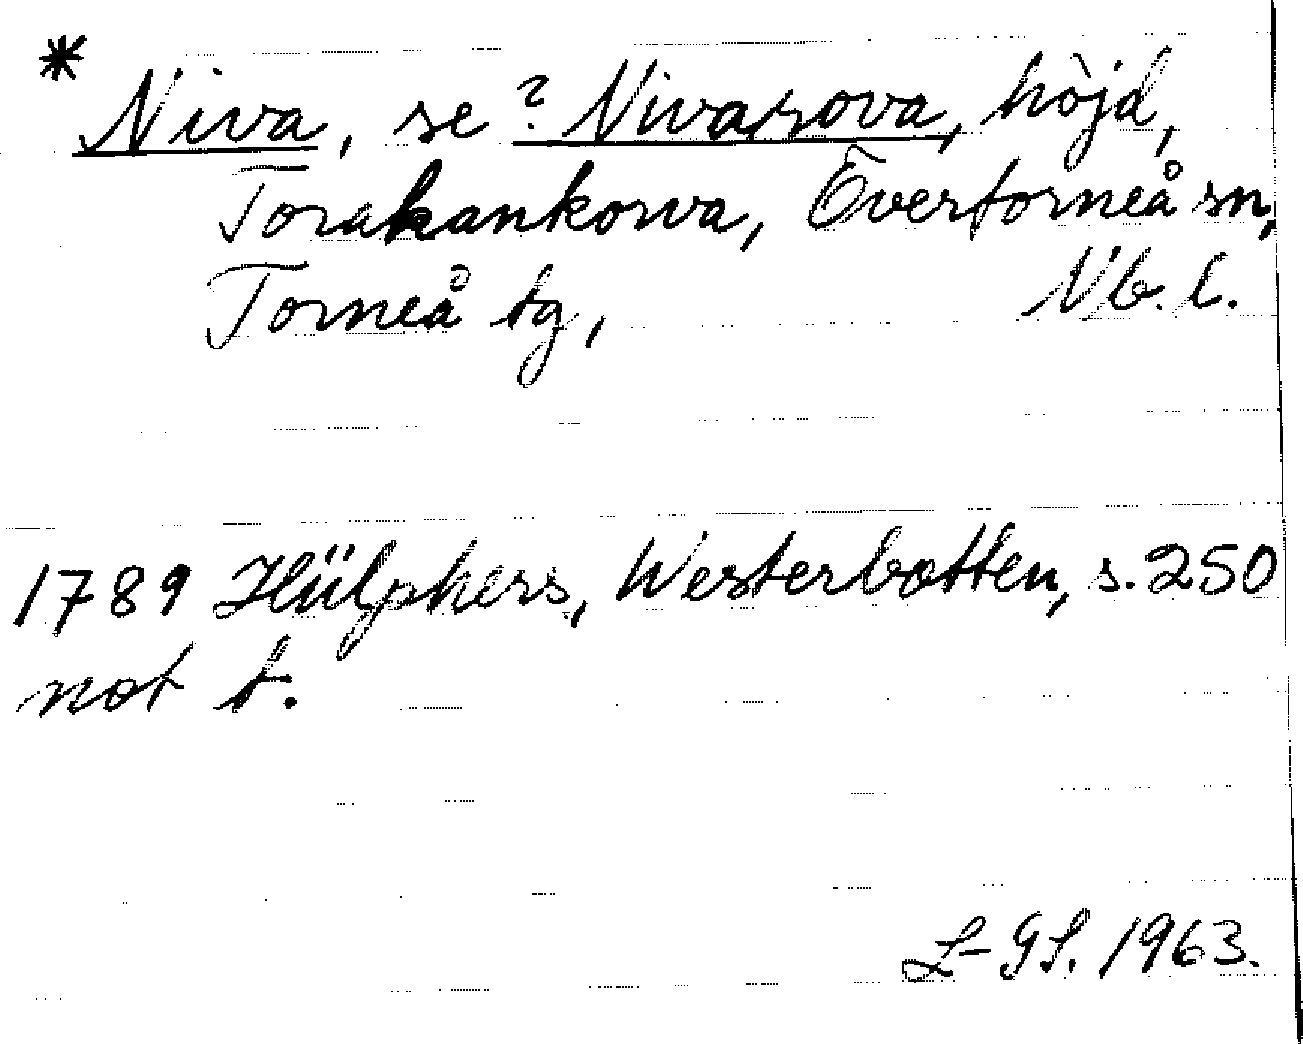 * Niva, se ? Nivarova, höjd,
Torakankorva, Övertorneå sn,
Torneå tg, Nb. l.
1789 Hülphers, Westerbotten, s. 250
not t.
L-GL. 1963.